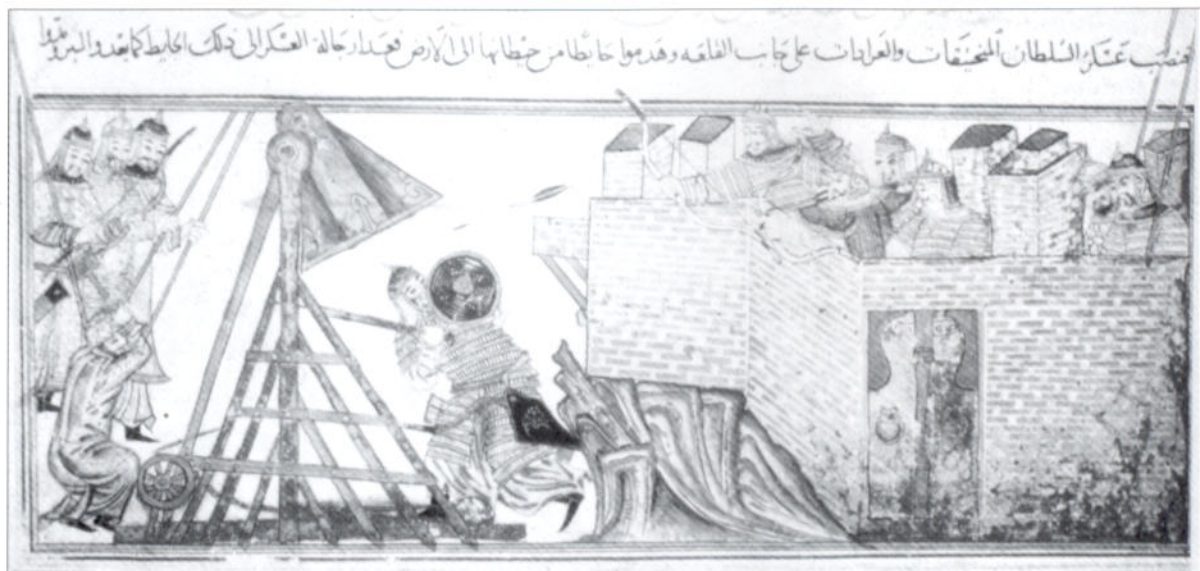 فنصب عسكر السلطان المنجنيقات والعرادات على جانب القلعه وهدموا حايطا من حيطانها الى الارض فعدا رجالة العسكر الى ذلك الحايط كما يعدو